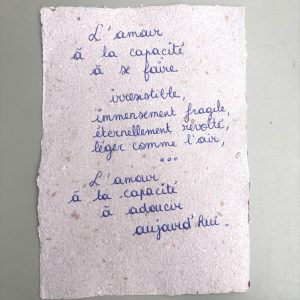 L'amour
à la capacité
à se faire
irrésistible,
immensément fragile,
éternellement révolté,
léger comme l'air,
...
L'amour
à la capacité
à adoucir
aujourd'hui.